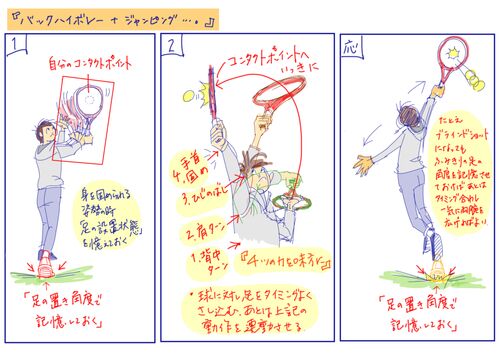 『バックハイボレー + ジャンピング・・・。』
1
自分のコンタクトポイント
身を固められる
姿勢の時
「足の設置状態」
を憶えておく
「足の置き角度で
記憶しておく」
2
コンタクトポイントへ
いっきに
4.手首
固め
3.ひじのばし
2.肩ターン
1.背中
ターン
『4つの力を味方に』
・球に対し足をタイミングよく
さし込む、あとは上記の
動作を連動させる
応
たとえ
ブラインドショット
になっても
ふみきり足の
角度を記憶させ
ておけばあとは
タイミング合わし
一気に胸腕を
広げればよい
「足の置き角度で
記憶しておく」